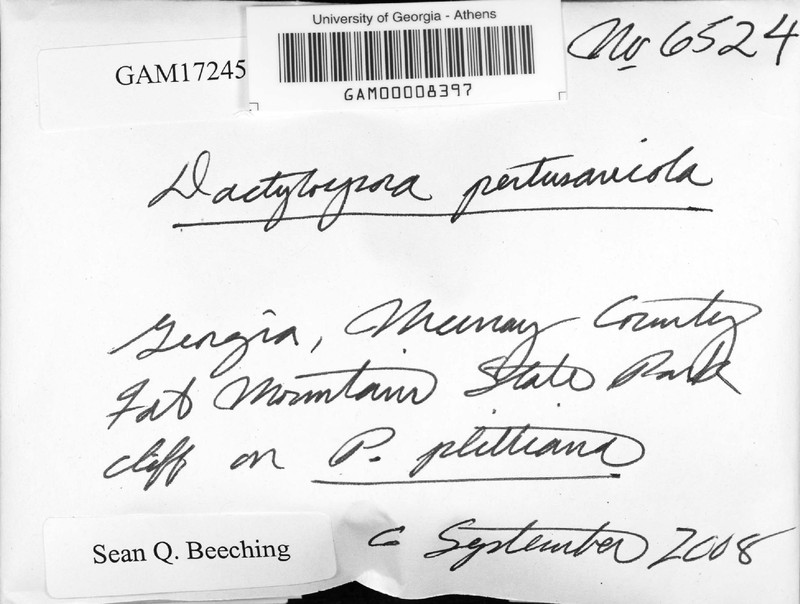 University of Georgia - Athens
GAM00008397
GAM17245
No 6524
Dactylospora pertusariicola
Georgia, Murray County
Fort Mountain State Park
cliff on P. plittiana
Sean Q. Beeching
September 2008